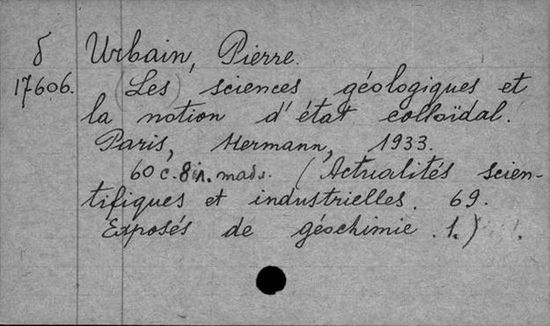 δ Urbain, Pierre.
17606. (Les) sciences géologiques et
la notion d'état colloïdal.
Paris, Hermann, 1933.
60 c. 8 in. mads. (Actualités scien-
tifiques et industrielles. 69.
Exposés de géochimie. 1.)